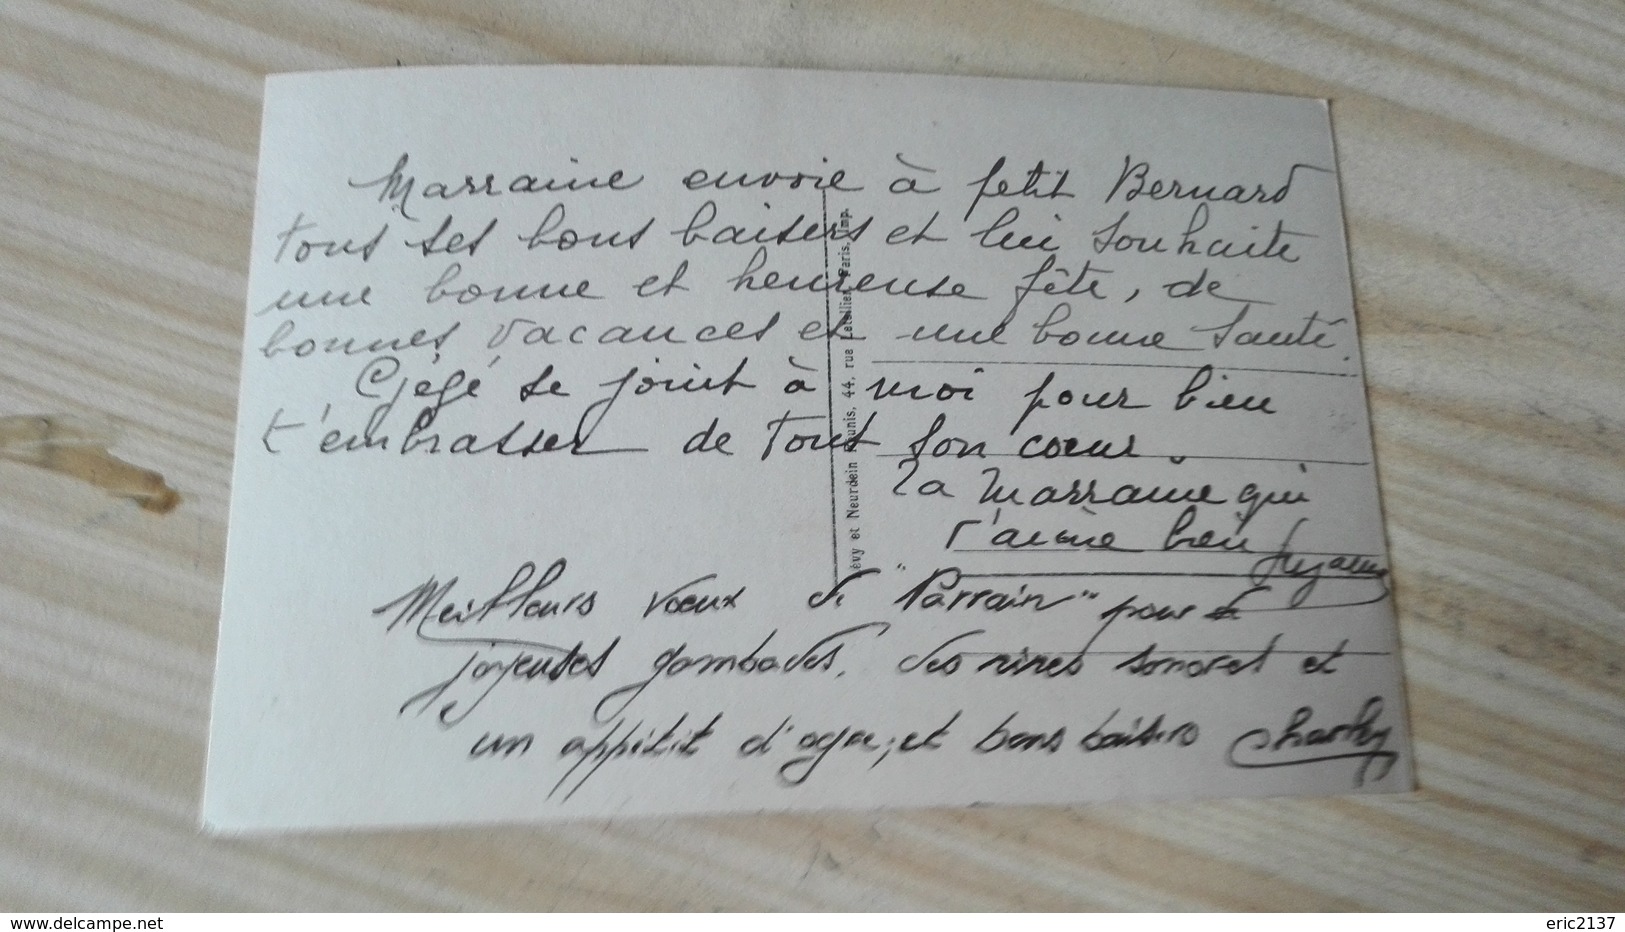 Marraine envoie à petit Bernard
tous ses bons baisers et lui souhaite
une bonne et heureuse fête, de
bonnes vacances et une bonne santé.
Gégé se joint à moi pour bien
t'embrasser de tout son cœur.
Ta Marraine qui
t'aime bien Suzanne
Meilleurs vœux de "Parrain" pour de
joyeuses gambades, des rires sonores et
un appétit d'ogre, et bons baisers Charley
évy et Neurdein Réunis, 44, rue Letellier, Paris, Imp.
www.delcampe.net
eric2137